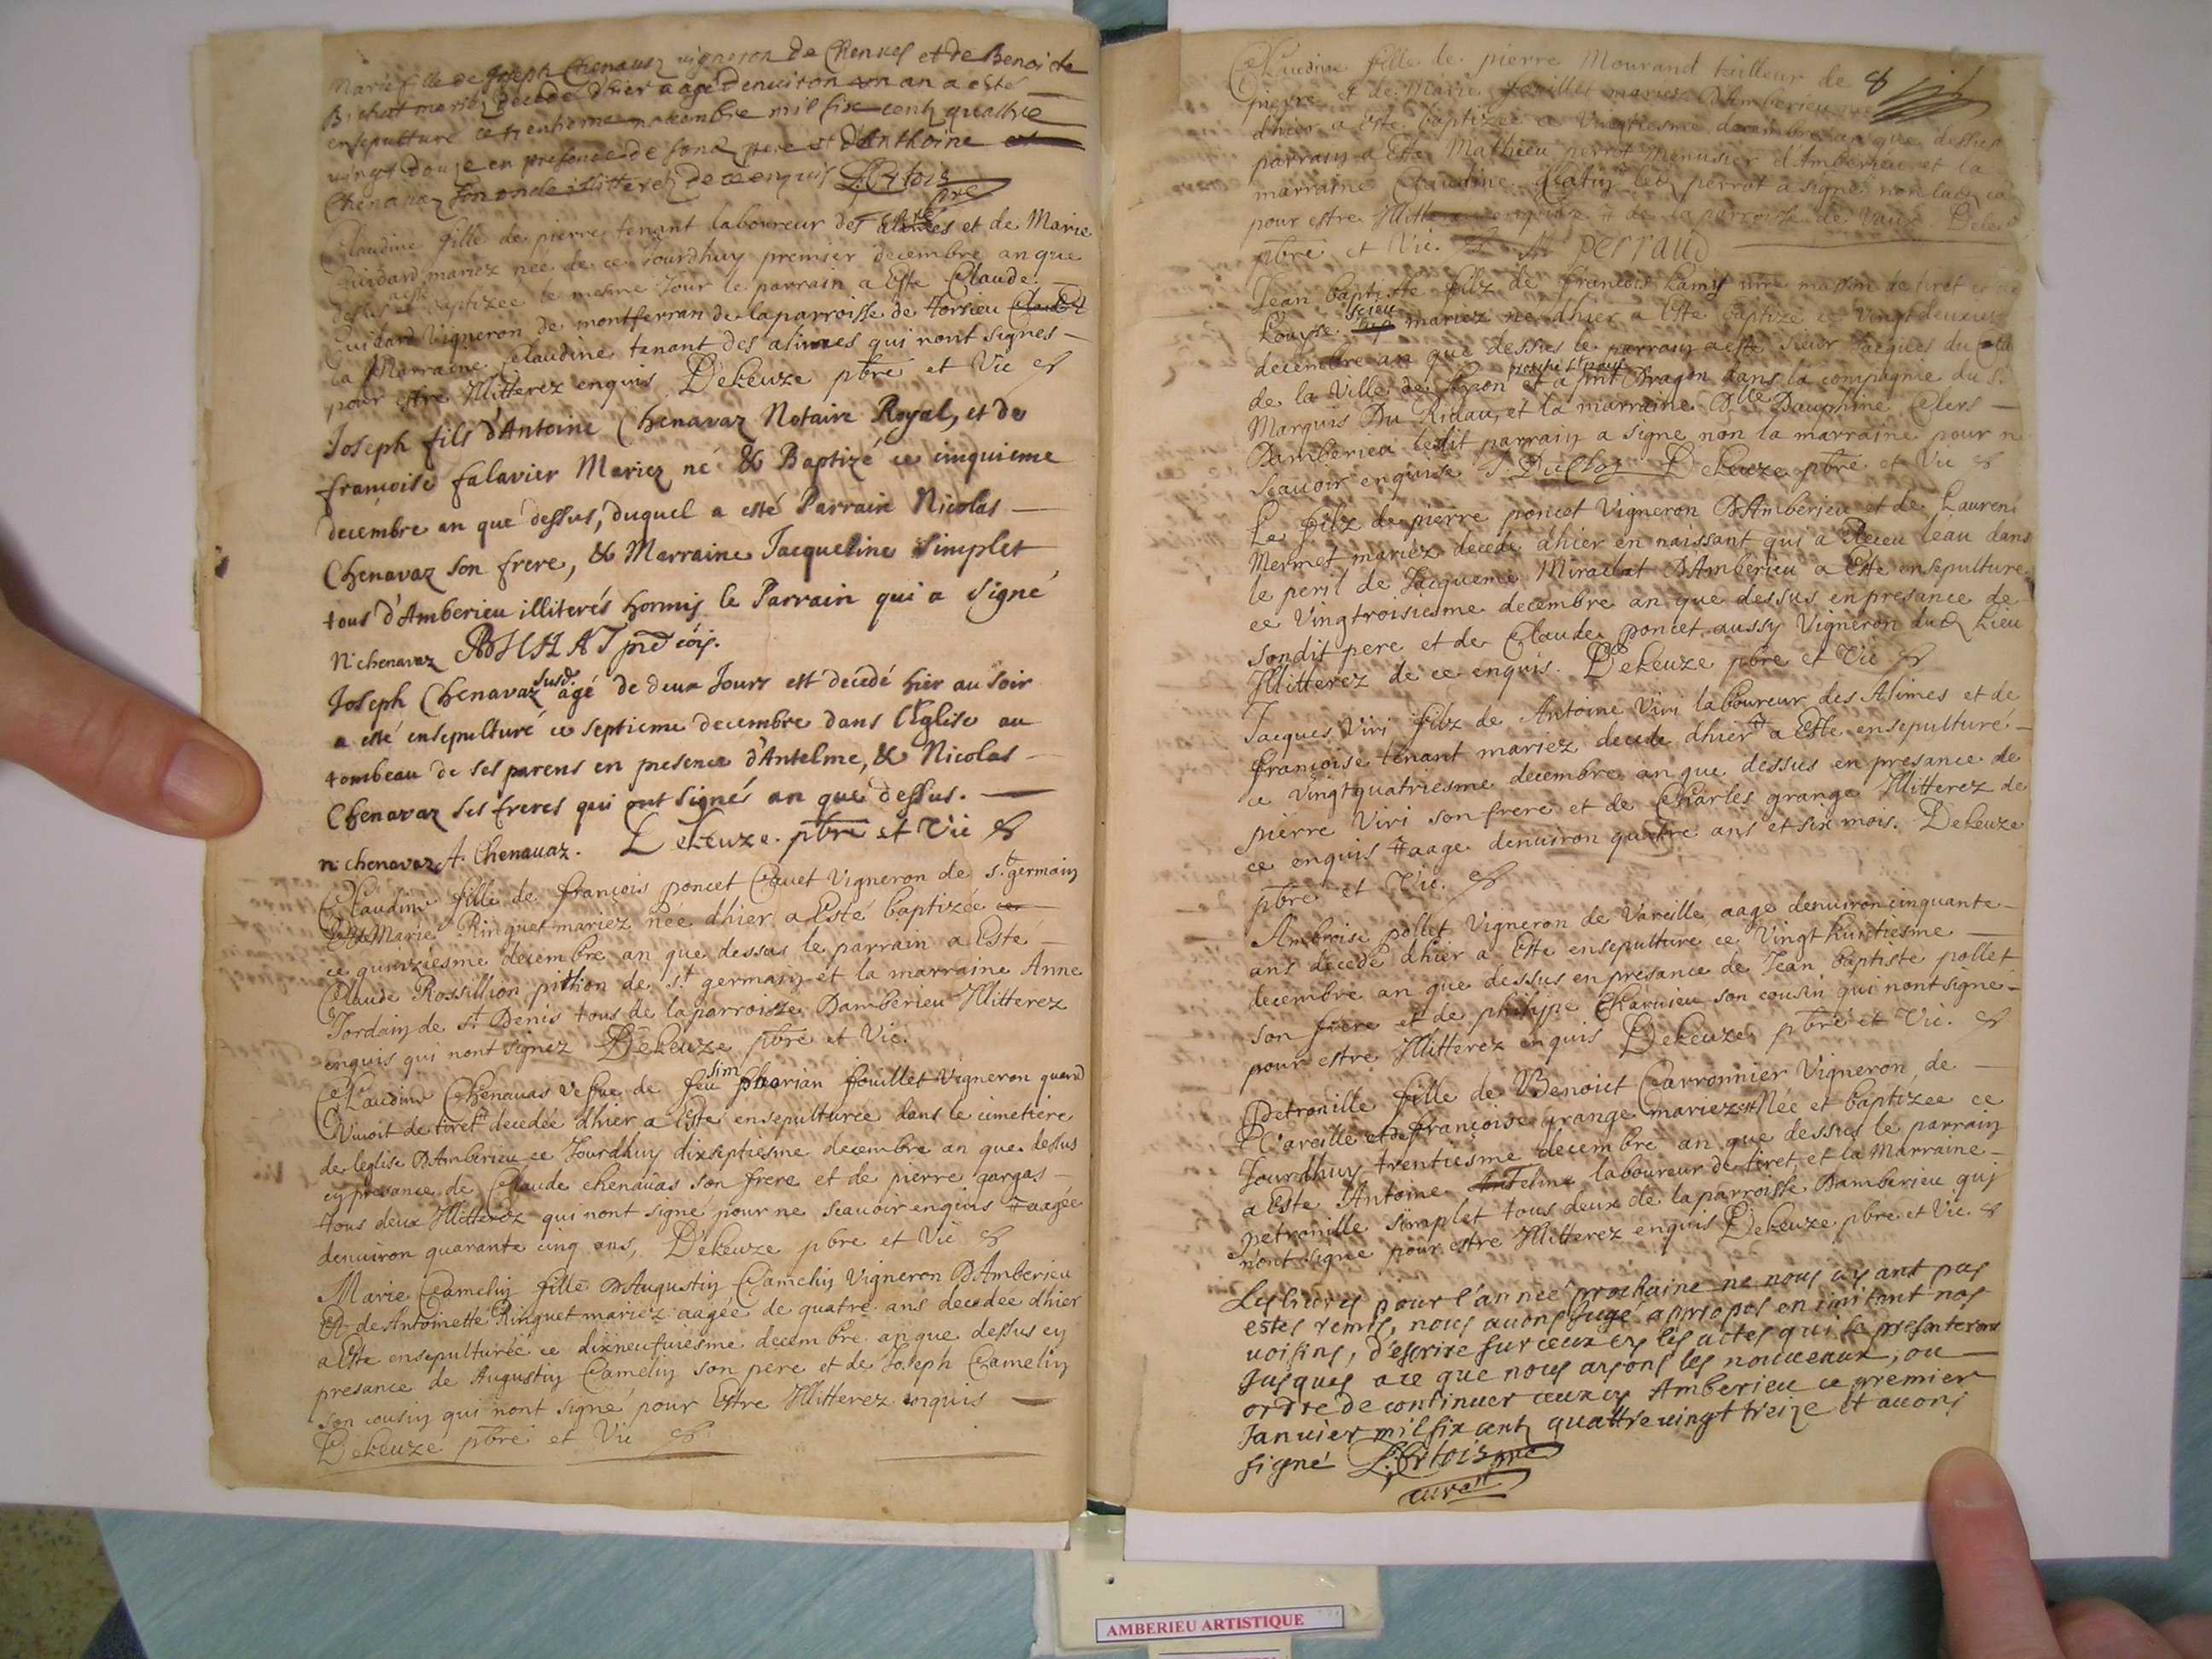 Marie fille de Joseph Chenavaz vigneron de Chenves et de Benoite
Bichat mariez decede dhier aagé denviron un an a esté
ensepulturé ce trentieme novembre mil six centz quattre
vingt douze en presence de sond pere et d'Anthoine
Chenavaz son oncle illitterez de ce enquis
Claudine fille de pierre tenant laboureur des alimes et de Marie
Guidard mariez née de ce Jourdhuy premier decembre an que
dessus a esté baptizee le mesme Jour le parrain a Esté Claude
Guidard Vigneron de montferran de la parroisse de torsieu
la Marraine Claudine tenant des alimes qui nont signes
pour estre Illitterez enquis Dekeuze pbre et Vic
Joseph fils d'Antoine Chenavaz Notaire Royal, et de
françoise falavier Mariez né & Baptizé ce cinquieme
decembre an que dessus, duquel a esté Parrain Nicolas
Chenavaz son frere, & Marraine Jacqueline Simplet
tous d'Amberieu illiterés hormis le Parrain qui a signé
N. chenavaz
Joseph Chenavaz susd. agé de deux Jours est decedé hier au soir
a esté ensepulturé ce septieme decembre dans l'Eglise au
tombeau de ses parens en presence d'Antelme, & Nicolas
Chenavaz ses freres qui ont signés an que dessus.
n. chenavaz A. Chenavaz. Dekeuze pbre et Vic
Claudine fille de françois poncet Cavet Vigneron de st germain
Et de Marie Ringuet mariez née dhier a Esté baptizée ce
ce quinziesme decembre an que dessus le parrain a Esté
Claude Rossillion pithion de st germain et la marraine Anne
Jordain de st Denis tous de la parroisse Damberieu Illitterez
enquis qui nont signez Dekeuze pbre et Vic.
Claudine Chenavas vefve de feu sim fouillet Vigneron quand
Vivoit de tiret decedée dhier a Esté ensepulturée dans le cimetiere
de leglise DAmberieu ce Jourdhuy dixseptiesme decembre an que dessus
en presance de Claude chenavas son frere et de pierre gargas
tous deux Illitterez qui nont signé pour ne scavoir enquis # aagée
denviron quarante cinq ans, Dekeuze pbre et Vic
Marie Camelin fille DAugustin Camelin Vigneron DAmberieu
Et de Antoinette Ringuet mariez aagée de quatre ans decedée dhier
a Esté ensepulturée ce dixneufviesme decembre an que dessus en
presance de Augustin Camelin son pere et de Joseph Camelin
son cousin qui nont signé pour Estre Illitterez enquis
Dekeuze pbre et Vic
Claudine fille de pierre Mourand tailleur de
pierre et de Marie fouillet mariez DAmberieu née
dhier a esté baptizée ce Vingtiesme decembre an que dessus
parrain a Esté Mathieu perrot menusier d'Amberieu et la
marraine Claudine led perrot a signé non lad
pour estre Illitteree enquise # de la parroisse de Vaux
pbre et Vic. M perraud
Jean baptiste filz de francois Lamy masson de tiret et de
Louyse mariez né dhier a Esté baptizé ce Vingt deuxies
decembre an que dessus le parrain a esté sieur Jacques du
de la Ville de Dragon dans la compagnie du sr
Marquis Du Ridau, et la marraine Dlle Dauphine Clers
Damberieu ledit parrain a signé non la marraine pour ne
scavoir enquise J. Duclos Dekeuze pbre et Vic
Le filz de pierre poncet Vigneron DAmberieu et de Laurens
Mermet mariez decedé dhier en naissant qui a Receu leau dans
le peril de Jacqueme Miraclat DAmberieu a Esté ensepulturé
ce Vingtroisiesme decembre an que dessus en presance de
sondit pere et de Claude poncet aussy Vigneron dud Lieu
Illitterez de ce enquis. Dekeuze pbre et Vic
Jacques Viri filz de Antoine Viri laboureur des Alimes et de
françoise tenant mariez decede dhier # a Esté ensepulturé
ce Vingtquatriesme decembre an que dessus en presance de
pierre Viri son frere et de Charles grange Illitterez de
ce enquis # aage denviron quatre ans et six mois. Dekeuze
pbre et Vic.
Ambroise pollet Vigneron de Vareille aage denviron cinquante
ans decede dhier a Esté ensepulture ce Vingt huictiesme
decembre an que dessus en presance de Jean baptiste pollet
son frere et de philippe Charvieu son cousin qui nont signé
pour estre Illitterez enquis Dekeuze pbre et Vic.
Petronille fille de Benoict Carronnier Vigneron de
Vareille et de françoise grange mariez Née et baptizée ce
Jourdhuy trentiesme decembre an que dessus le parrain
a Esté Antoine laboureur de tiret et la Marraine
petronille simplet tous deux de la parroisse Damberieu qui
n'ont signe pour estre Illitterez enquis Dekeuze pbre et Vic.
Les livres pour l'année prochaine ne nous ayant pas
estes remis, nous avons jugé appropos en imitant nos
voisins, d'escrire sur ceux cy les actes qui se presenteront
jusques a ce que nous ayons les nouveaux, ou
ordre de continuer ceux cy Amberieu ce premier
Janvier mil six centz quattre vingt treize et avons
signé
curé
AMBERIEU ARTISTIQUE